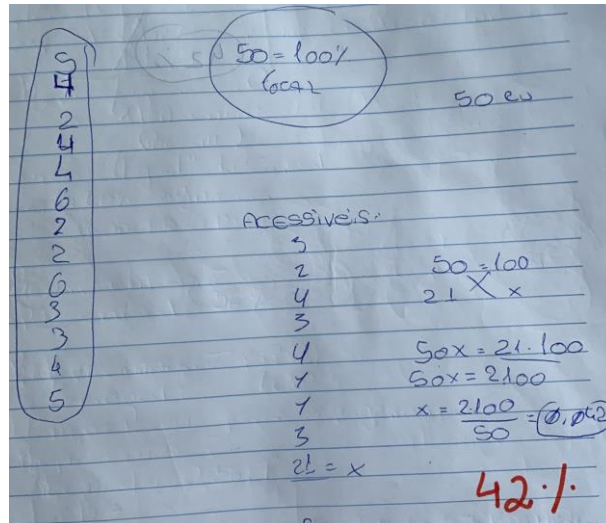 5
4
2
4
4
6
2
2
6
3
3
4
5
50 = 100%
Local
50 eu
ACESSÍVEIS:
3
2
4
3
4
1
1
3
21 = x
50 = 100
21 x
50x = 21.100
50x = 2100
x = 2100
50
42%